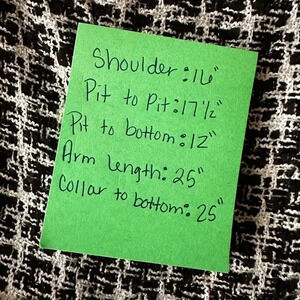 Shoulder: 16"
Pit to Pit: 17 1/2"
Pit to bottom: 12"
Arm length: 25"
Collar to bottom: 25"